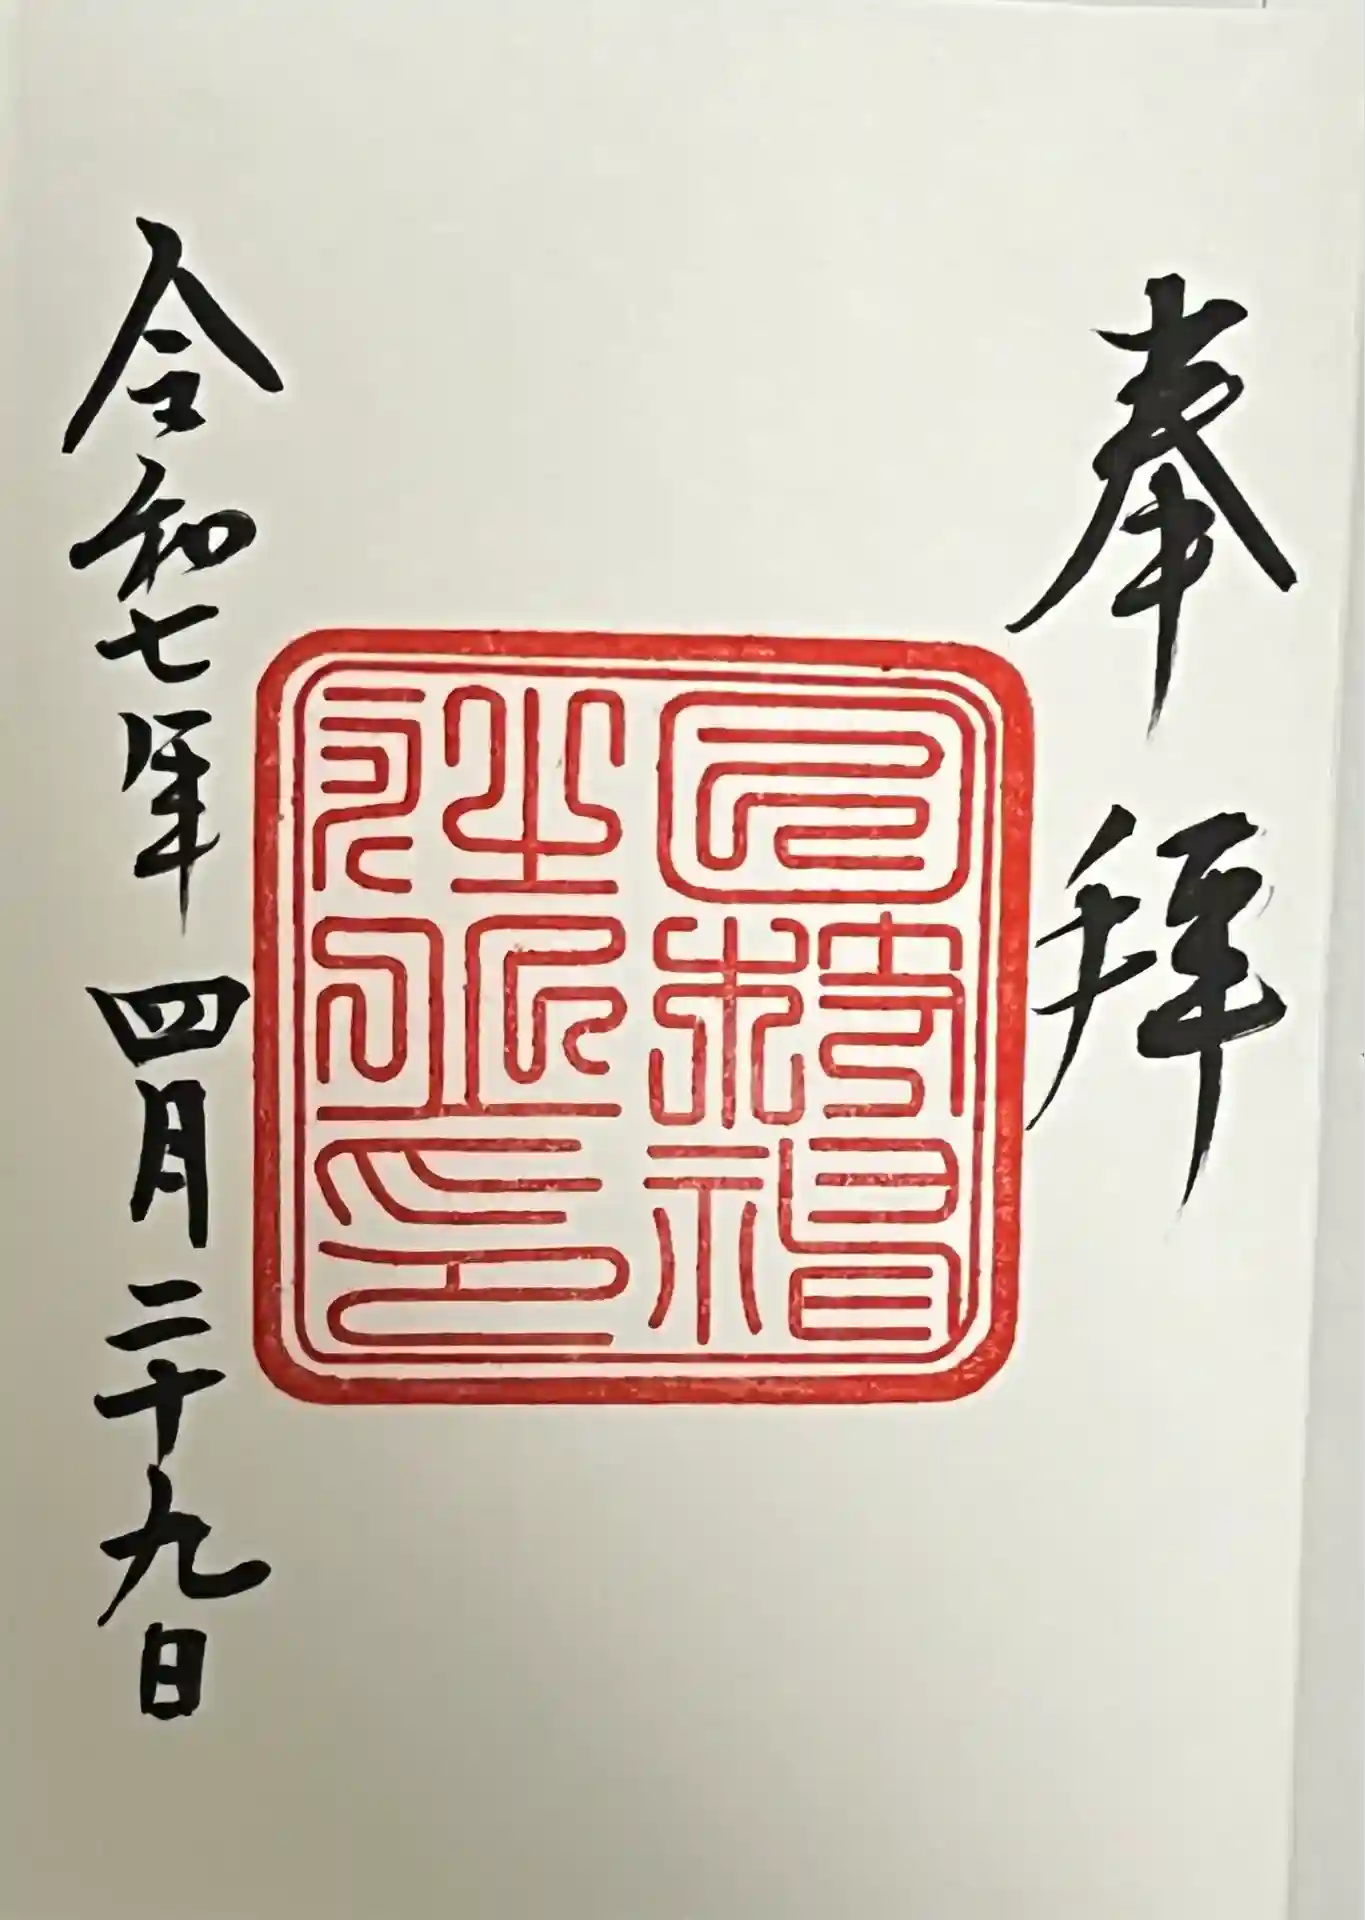 奉拝
令和七年四月二十九日